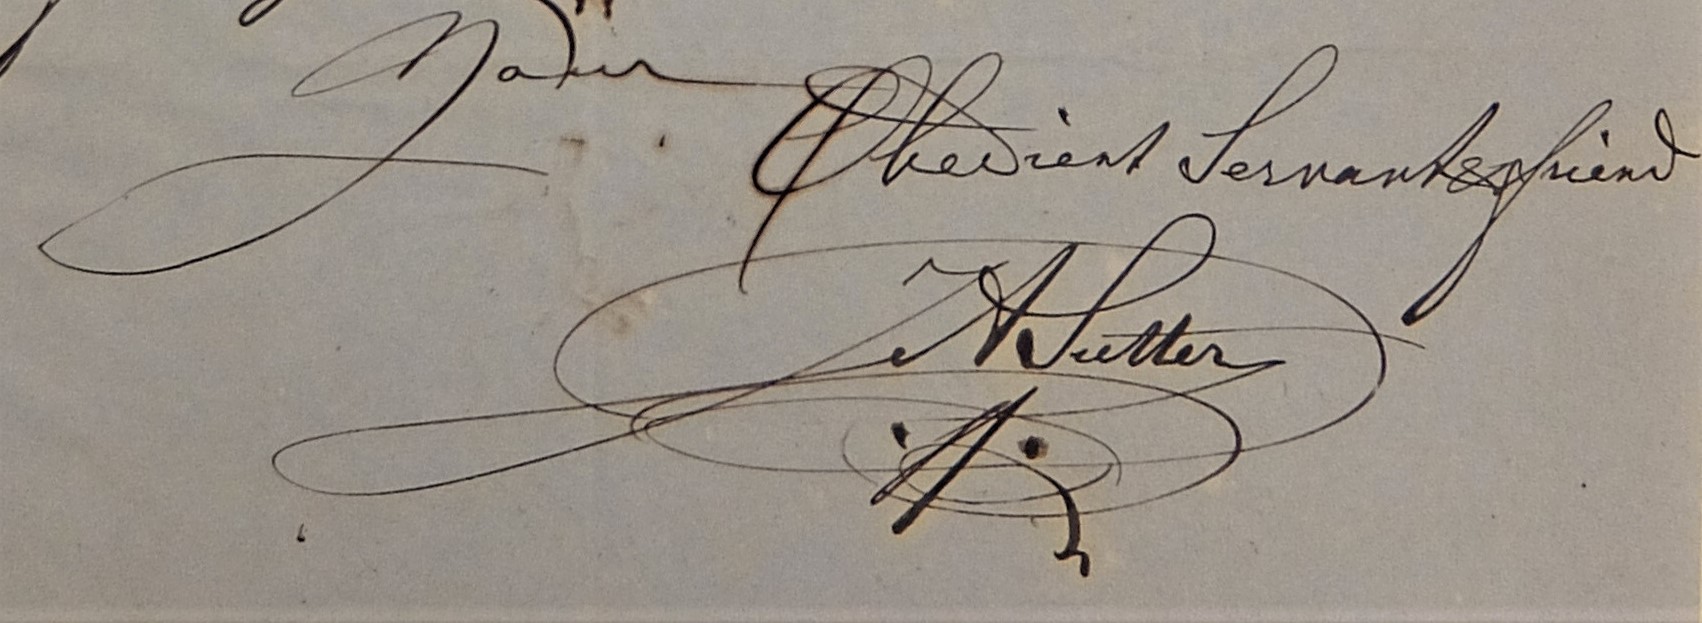 Your
Obedient Servant & friend
J A Sutter